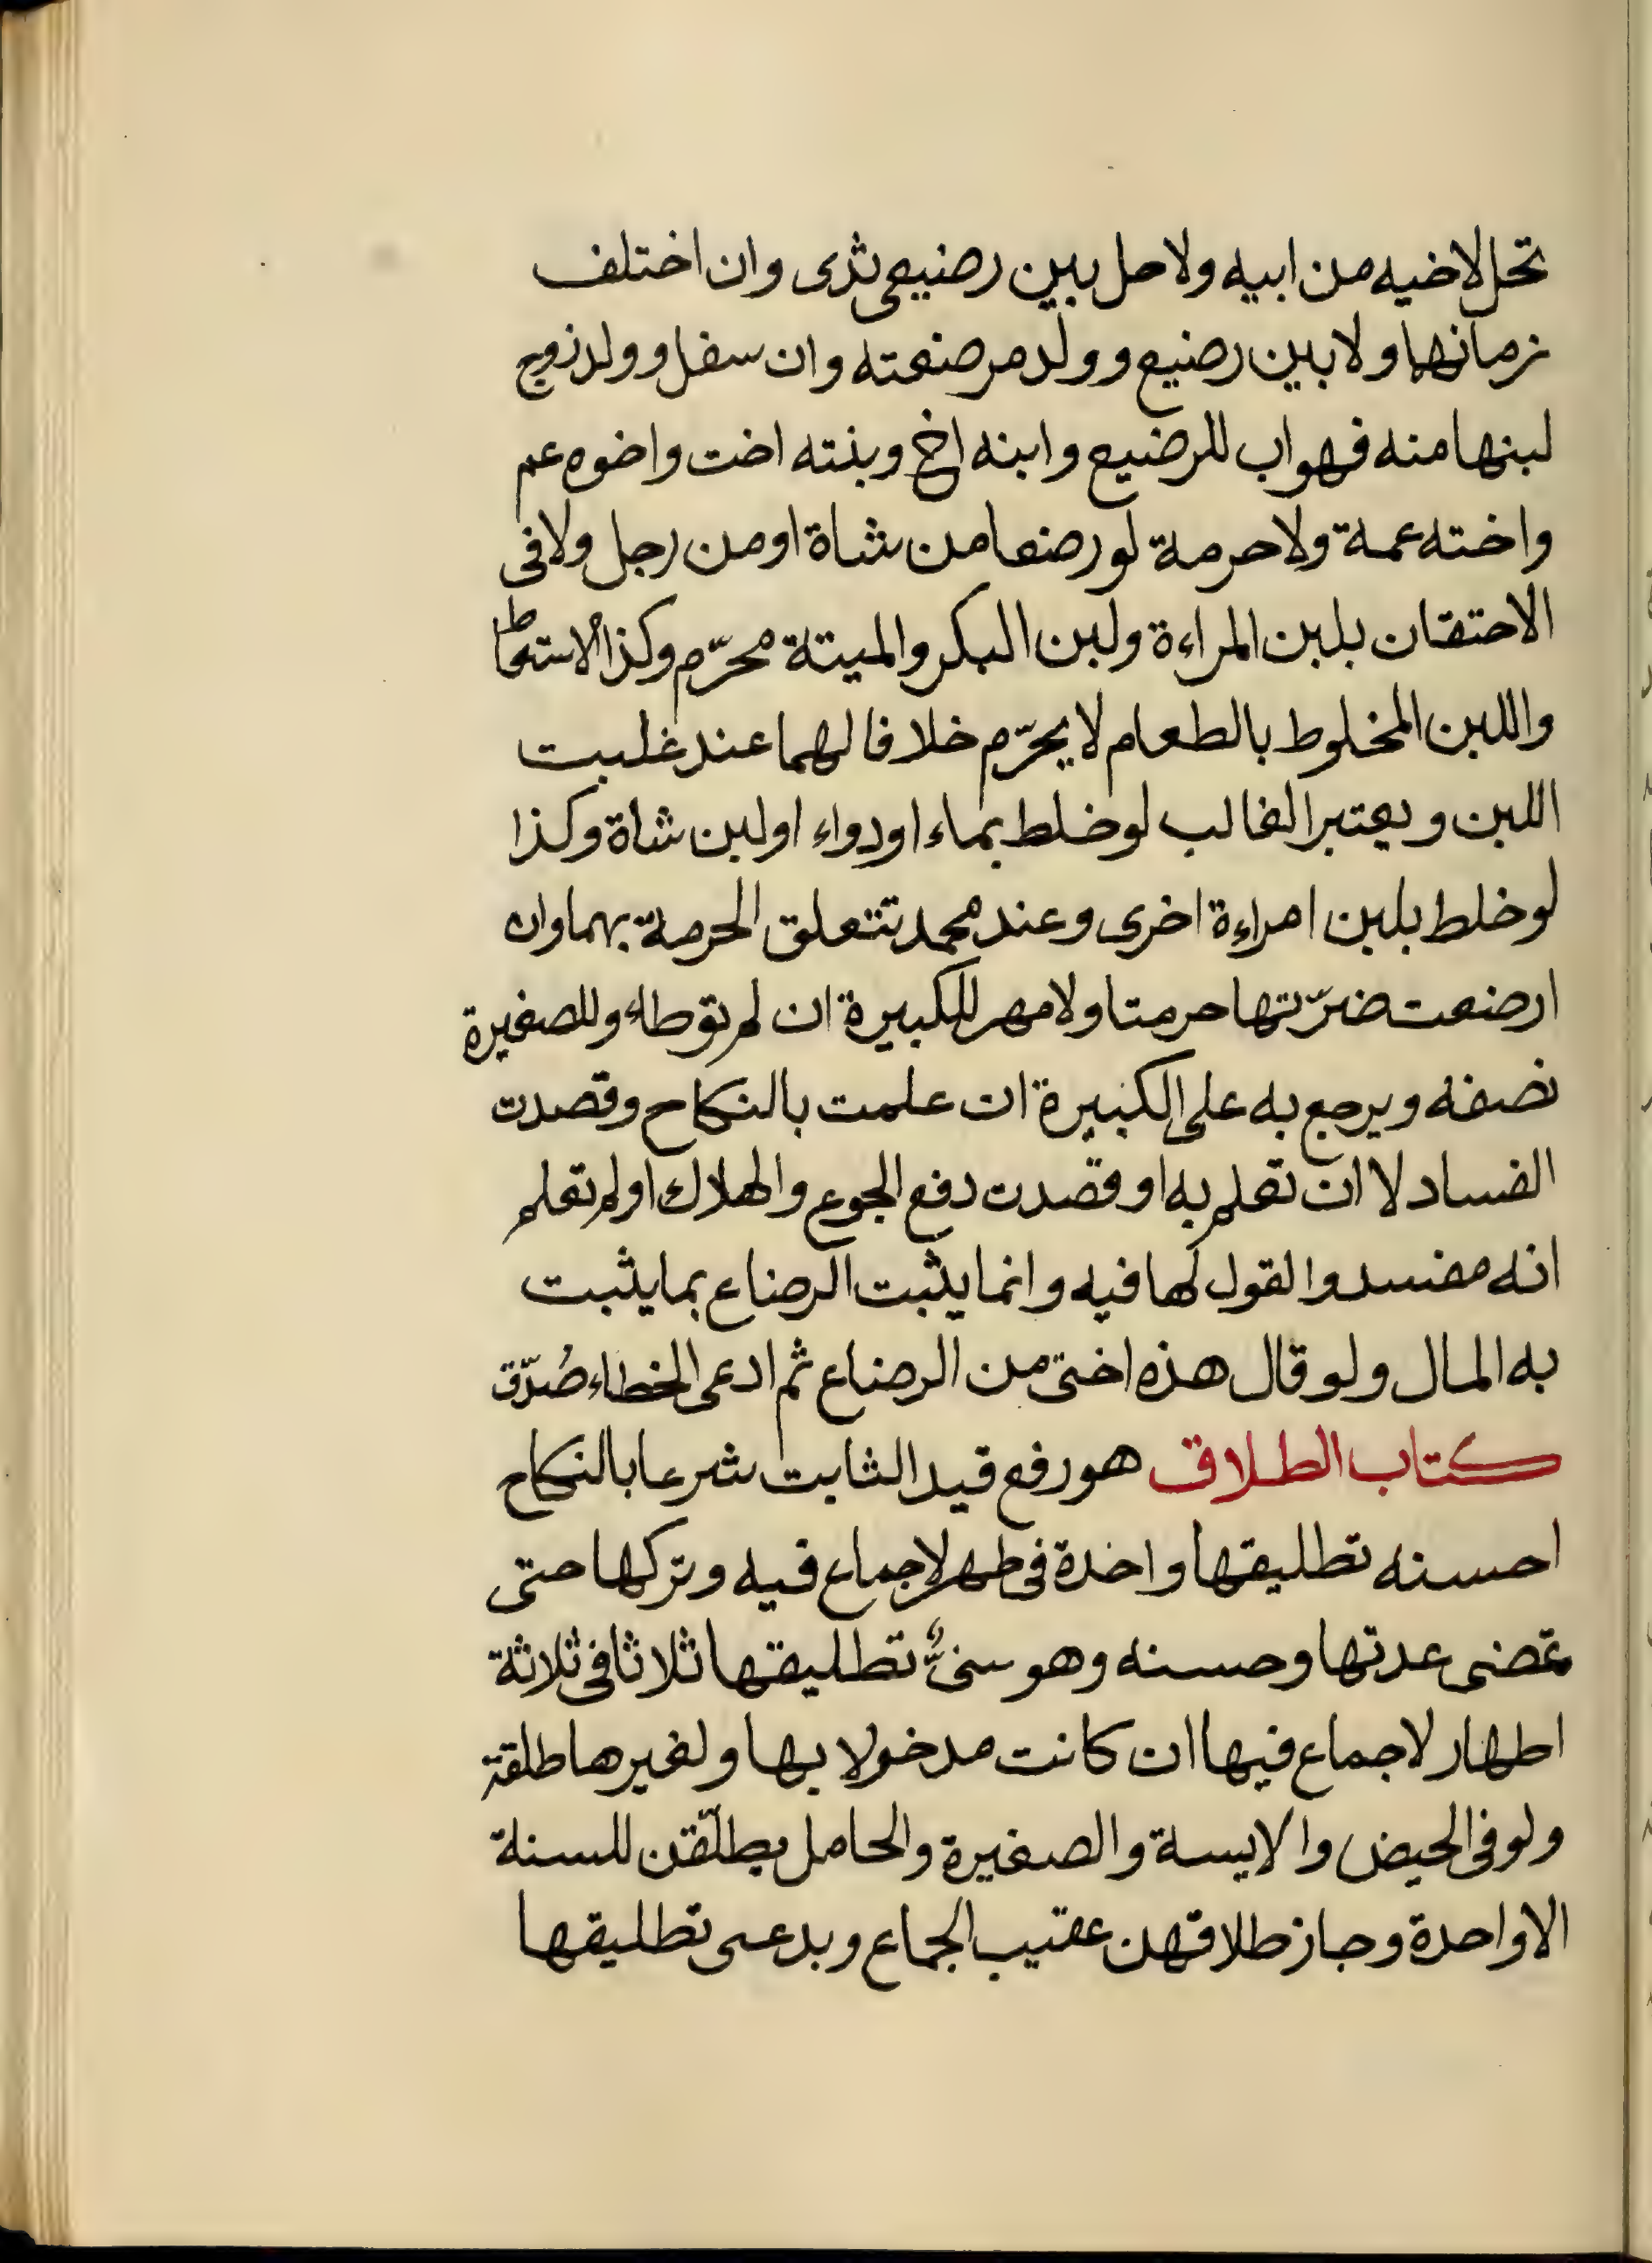 تحل لاخيه من ابيه ولا حل بين رضيعى ثدى وان اختلف
زمانهما ولا بين رضيع وولد مرضعته وان سفل وولد زوج
لبنها منه فهو اب للرضيع وابنه اخ وبنته اخت واخوه عم
واخته عمة ولا حرمة لو رضعا من شاة او من رجل ولا فى
الاحتقان بلبن المراءة ولبن البكر والميتة محرّم وكذا الاستعاط
واللبن المخلوط بالطعام لا يحرّم خلافا لهما عند غلبت
اللبن ويعتبر الغالب لو خلط بماء او دواء او لبن شاة وكذا
لو خلط بلبن امراءة اخرى وعند محمد تتعلق الحرمة بهما وان
ارضعت ضرّتها حرمتا ولا مهر للكبيرة ان لم توطاء وللصغيرة
نصفه ويرجع به على الكبيرة ان علمت بالنكاح وقصدت
الفساد لا ان تعلم به او قصدت دفع الجوع والهلاك او لم تعلم
انه مفسد والقول لها فيه وانما يثبت الرضاع بما يثبت
به المال ولو قال هذه اختى من الرضاع ثم ادعى الخطاء صُدّق
كتاب الطلاق هو رفع قيد الثابت شرعا بالنكاح
احسنه تطليقها واخدة فى طهر لا جماع فيه وتركها حتى
تمضى عدتها وحسنه وهو سنىٌّ تطليقها ثلاثا فى ثلاثة
اطهار لا جماع فيها ان كانت مدخولا بها ولغيرها طلقة
ولو فى الحيض والايسة والصغيرة والحامل يطلّقن للسنة
الا واحدة وجاز طلاقهن عقيب الجماع وبدعى تطليقها